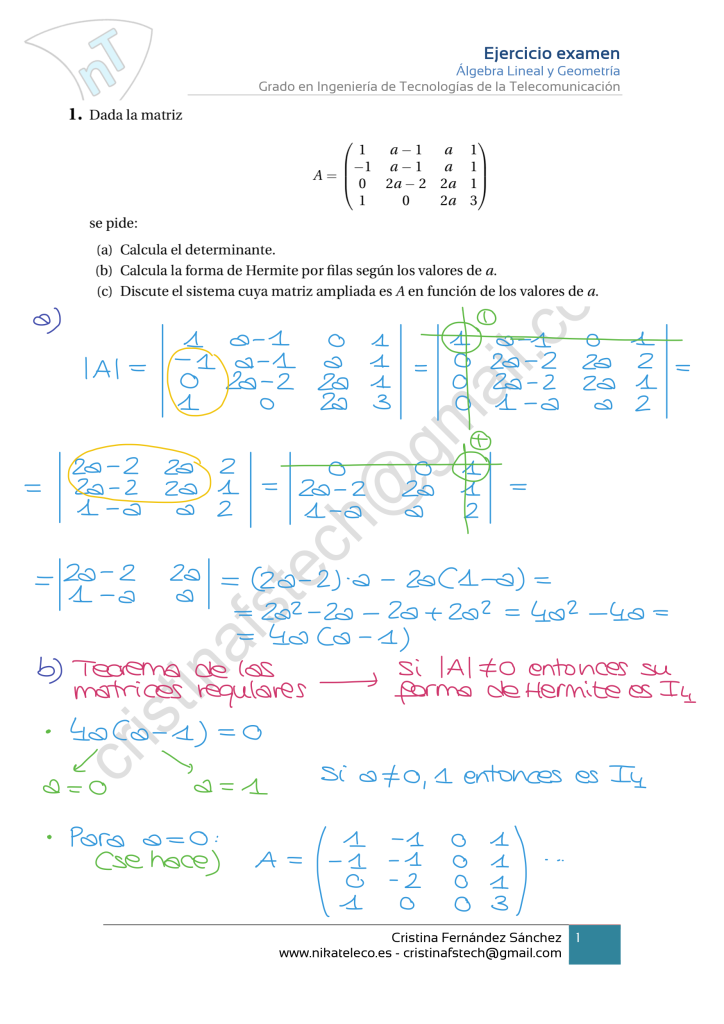 nT
Ejercicio examen
Álgebra Lineal y Geometría
Grado en Ingeniería de Tecnologías de la Telecomunicación
1. Dada la matriz
A = ( 1 a − 1 a 1
−1 a − 1 a 1
0 2a − 2 2a 1
1 0 2a 3 )
se pide:
(a) Calcula el determinante.
(b) Calcula la forma de Hermite por filas según los valores de a.
(c) Discute el sistema cuya matriz ampliada es A en función de los valores de a.
a)
|A| = | 1 a-1 a 1 | = | 1 a-1 a 1 | =
| -1 a-1 a 1 | | 0 2a-2 2a 2 |
| 0 2a-2 2a 1 | | 0 2a-2 2a 1 |
| 1 0 2a 3 | | 0 1-a a 2 |
= | 2a-2 2a 2 | = | 0 0 1 | =
| 2a-2 2a 1 | | 2a-2 2a 1 |
| 1-a a 2 | | 1-a a 2 |
= | 2a-2 2a | = (2a-2)·a - 2a(1-a) =
| 1-a a |
= 2a² - 2a - 2a + 2a² = 4a² - 4a =
= 4a(a-1)
b) Teorema de las matrices regulares → Si |A| ≠ 0 entonces su forma de Hermite es I₄
· 4a(a-1) = 0
a = 0 a = 1 Si a ≠ 0, 1 entonces es I₄
· Para a = 0:
(se hace) A = ( 1 -1 0 1
-1 -1 0 1
0 -2 0 1
1 0 0 3 ) ...
cristinafstech@gmail.co
Cristina Fernández Sánchez 1
www.nikateleco.es - cristinafstech@gmail.com